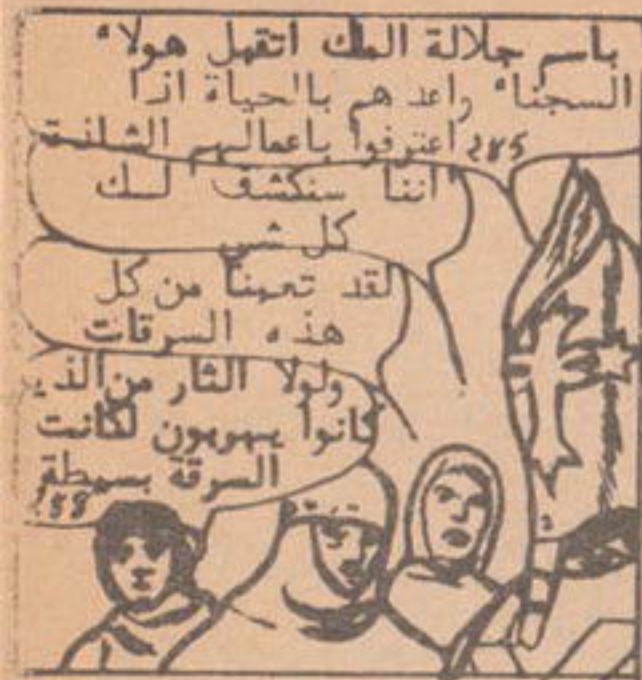 باسم جلالة الملك اتقبل هولاء
السجناء راعدهم بالحياة اذا
اعترفوا باعمالهم الشلنيت
285
اننا سنكشف لك
كل شي
لقد تعبنا من كل
هذه السرقات
ولولا الثار من الذي
كانوا يهربون لكانت
السرقة بسيطة
58